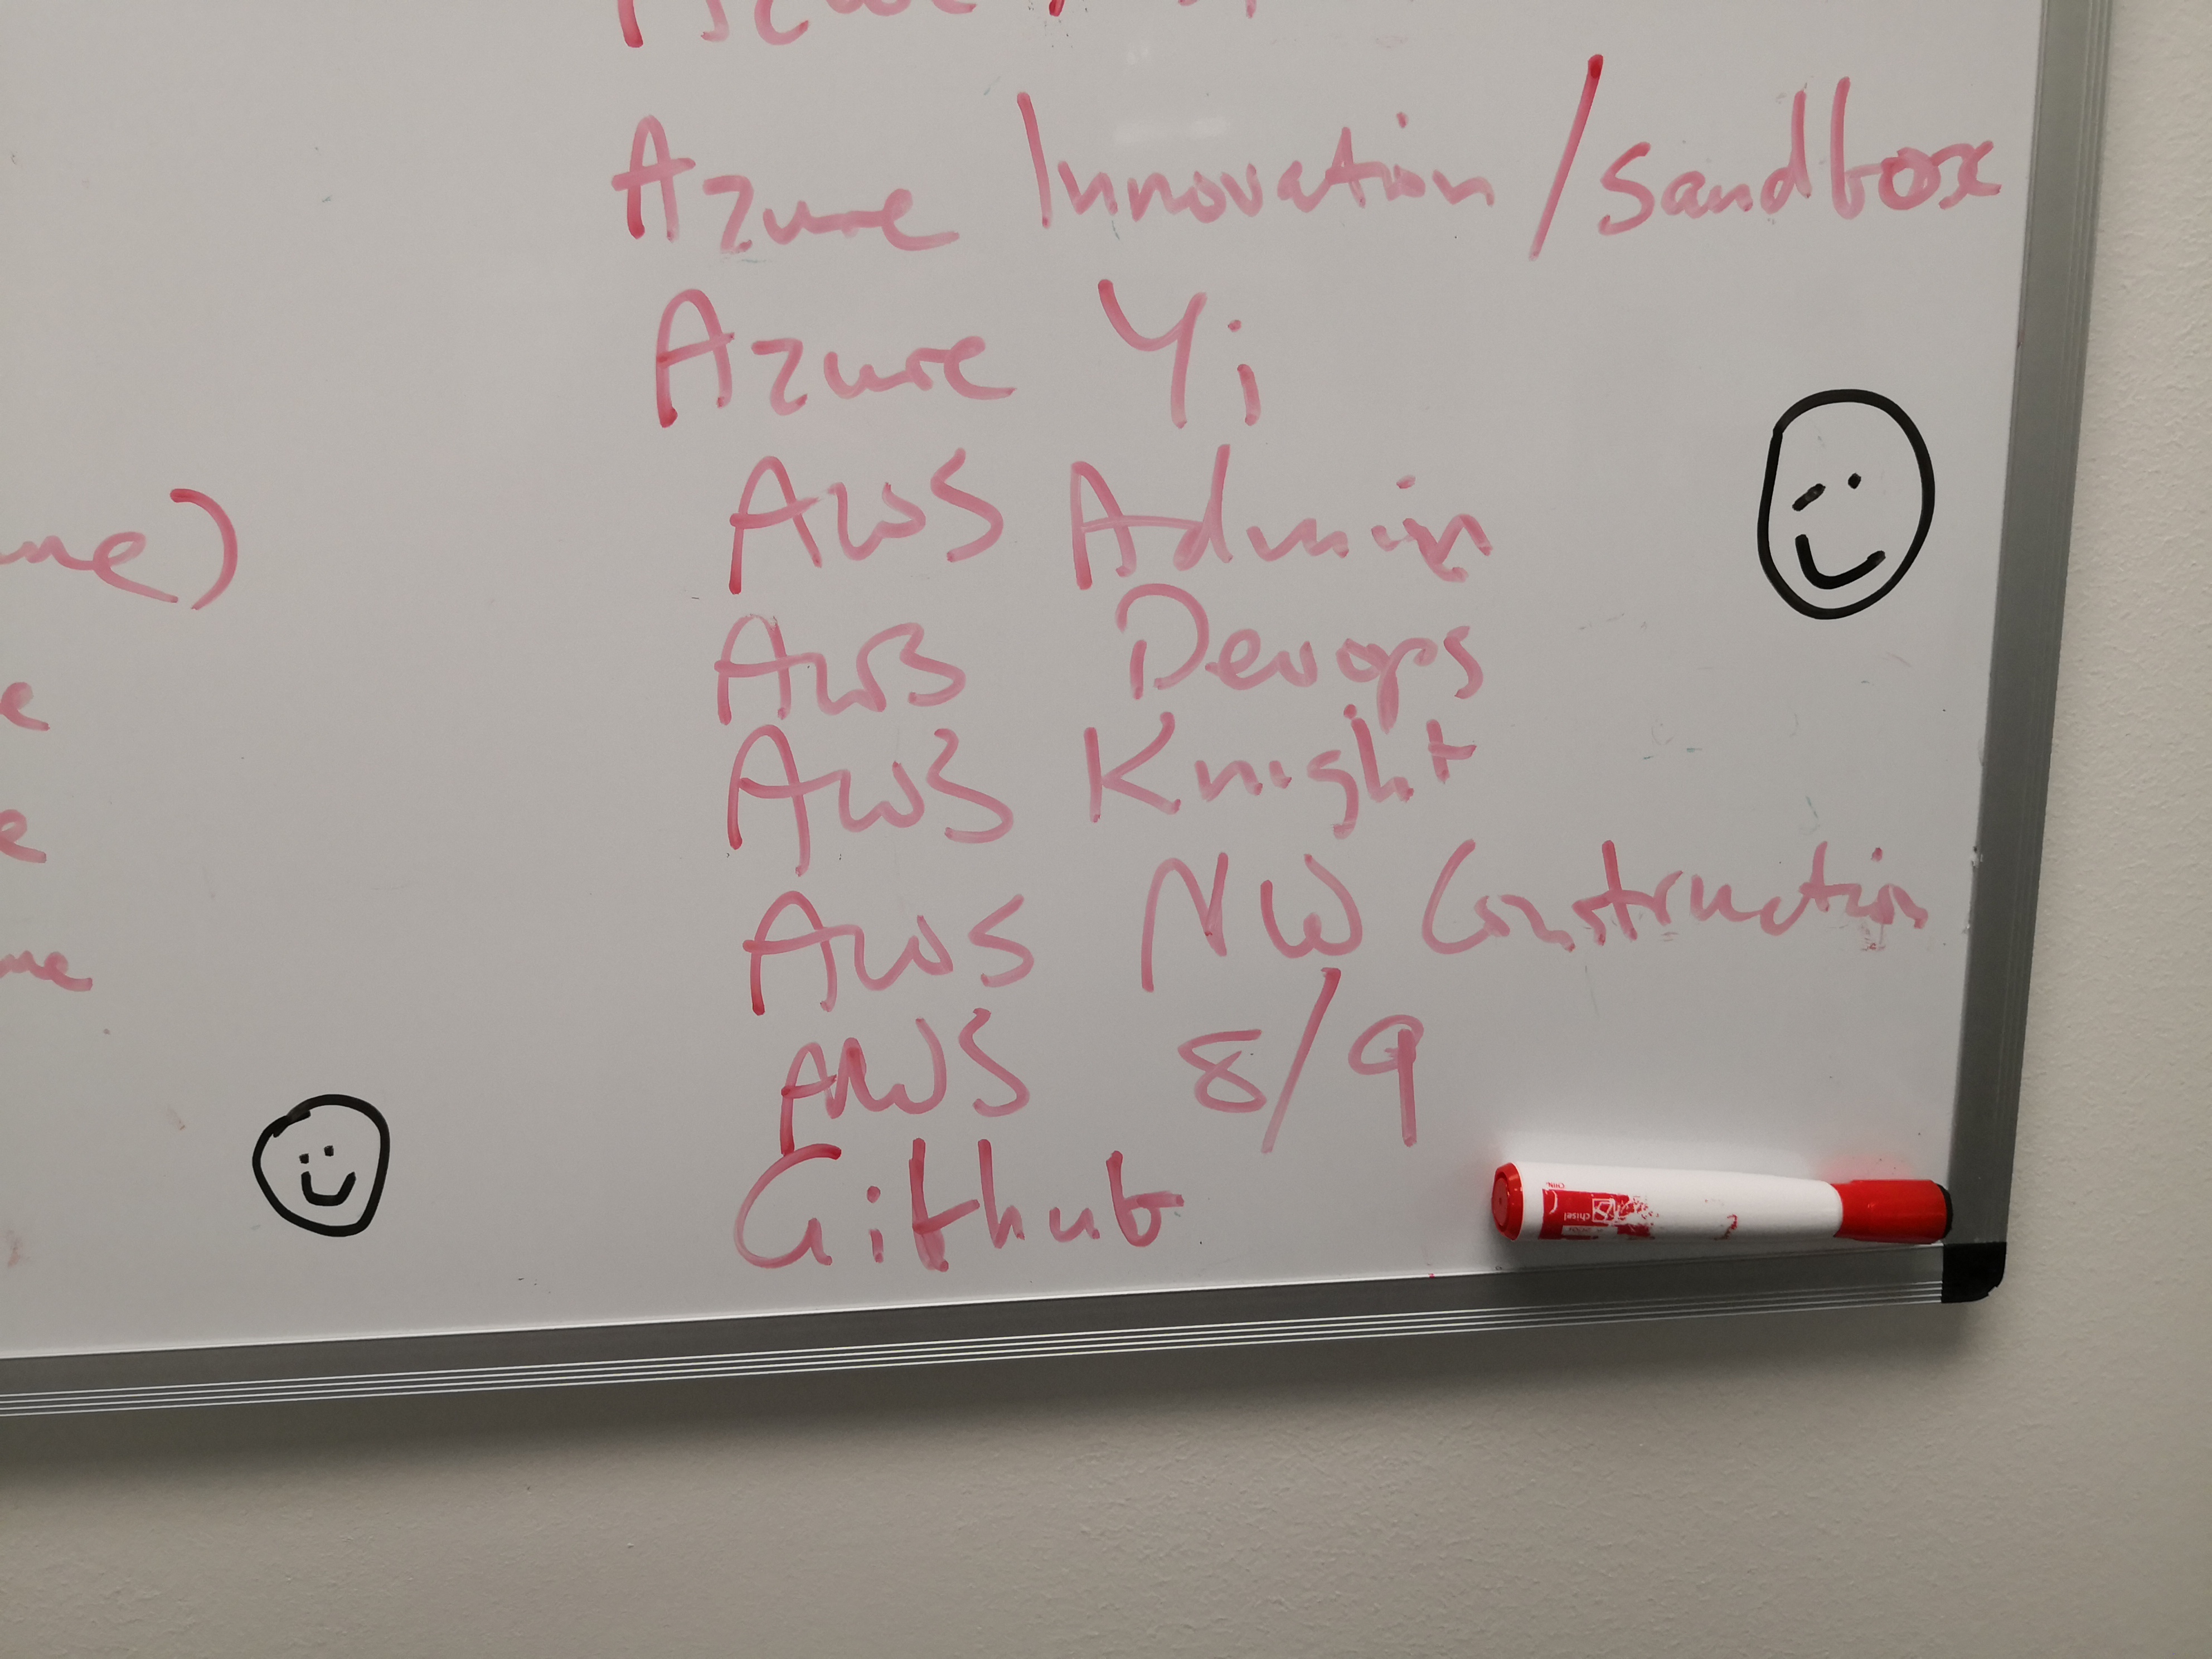 Azure Innovation/sandbox
Azure Yi
AWS Admin
AWS Devops
AWS Knight
AWS NW Construction
AWS 8/9
Github
chisel